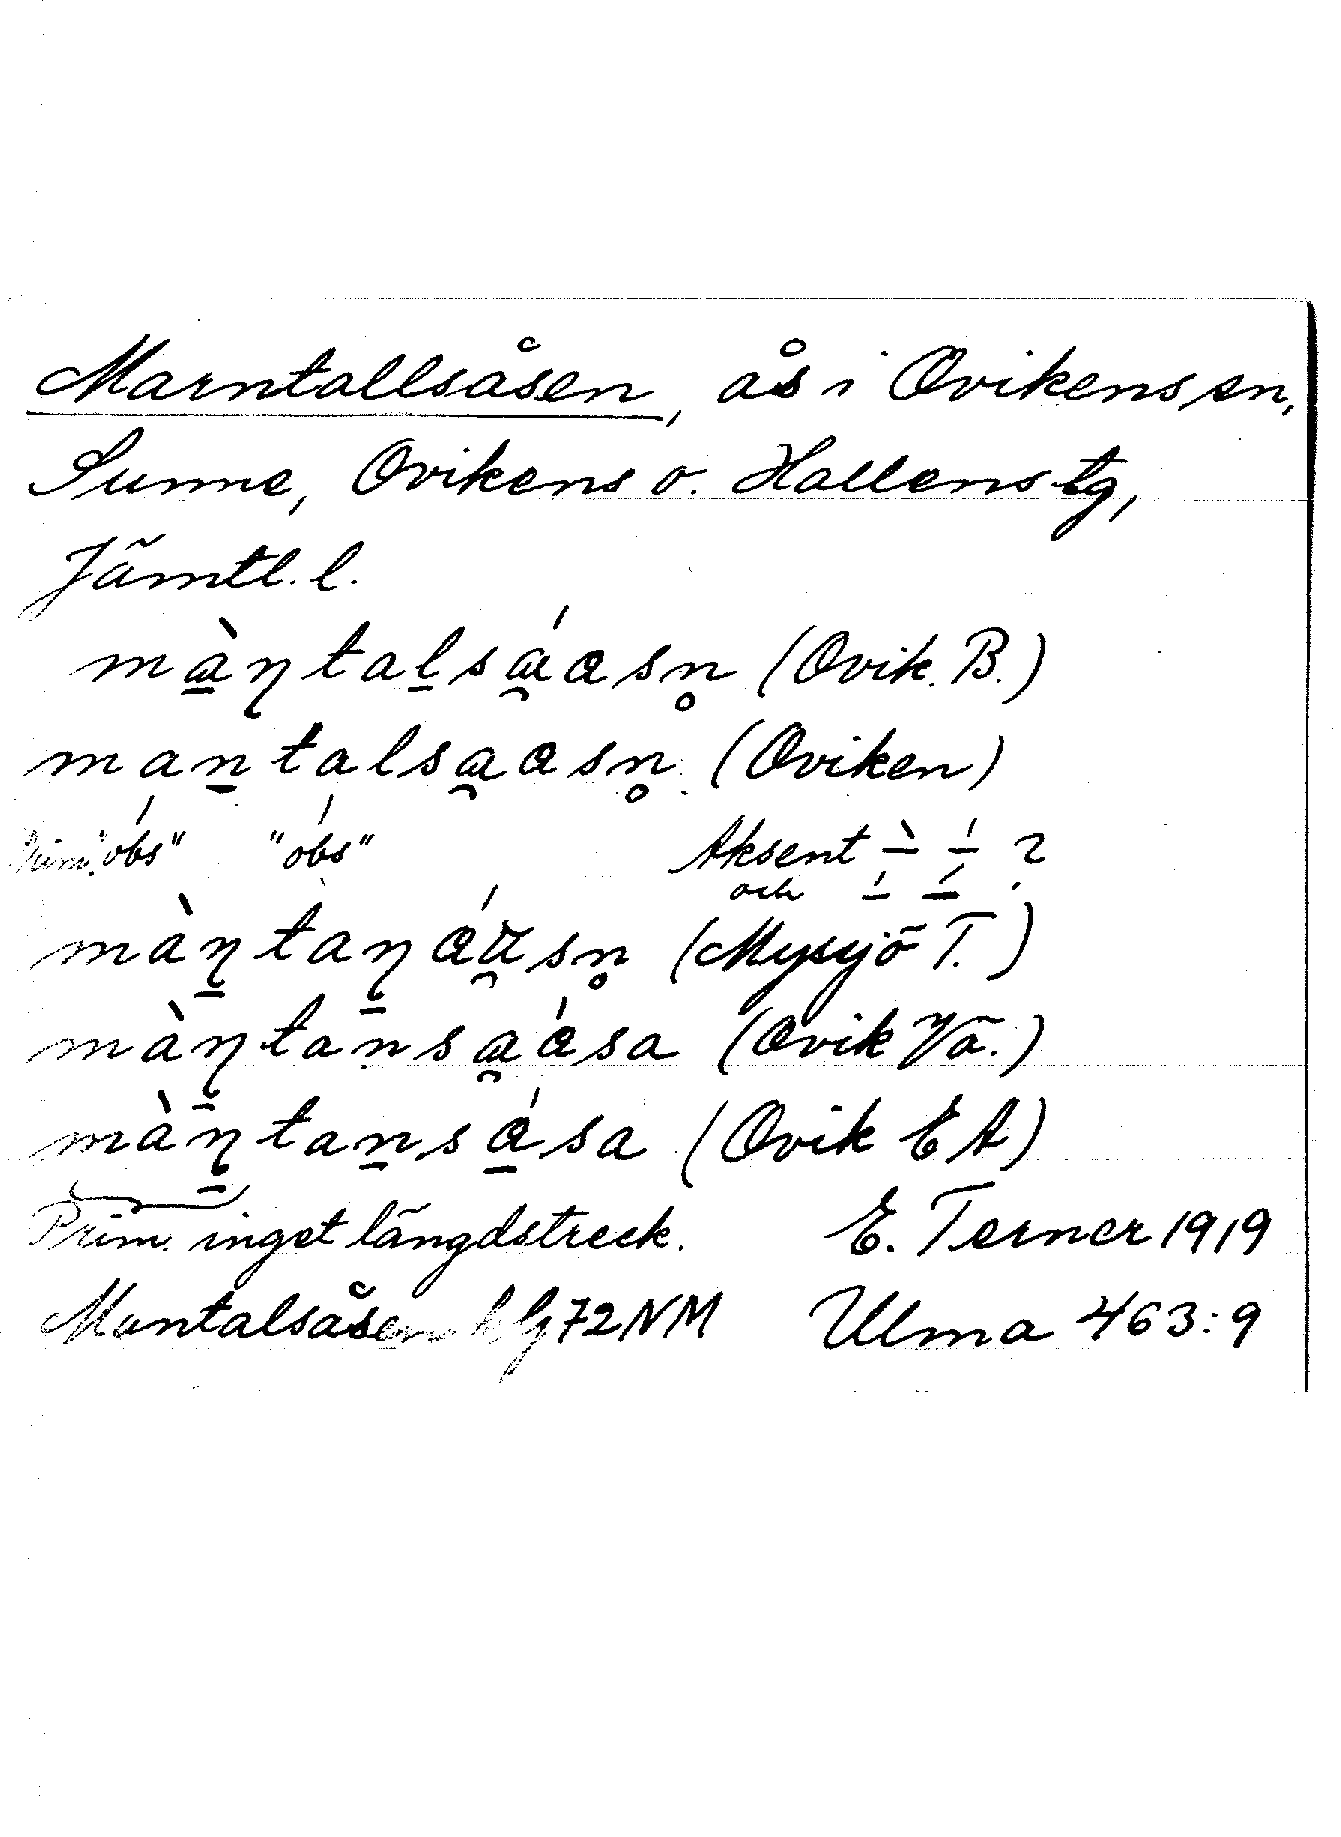 Marntallsåsen, ås i Ovikens sn,
Sunne, Ovikens o. Hallens tg,
Jämtl. l.
mɑ̱̀ɳtaḻsɑ̯́ɑsn̥ (Ovik. B.)
maṉtalsɑ̯ɑsn̥ (Oviken)
Prim. "óbs" "óbs" Aksent `— ´— ?
och ´— ´—
màɳ̱taɳ̱ sn̥ (Mysjö T.)
màɳ̱tansɑ̯ɑ́sa (Ovik Vä.)
màɳ̱taṉsɑ̱́sa (Ovik E A)
Prim. inget längdstreck. E. Terner 1919
Mantalsåsen 72 NM Ulma 463:9